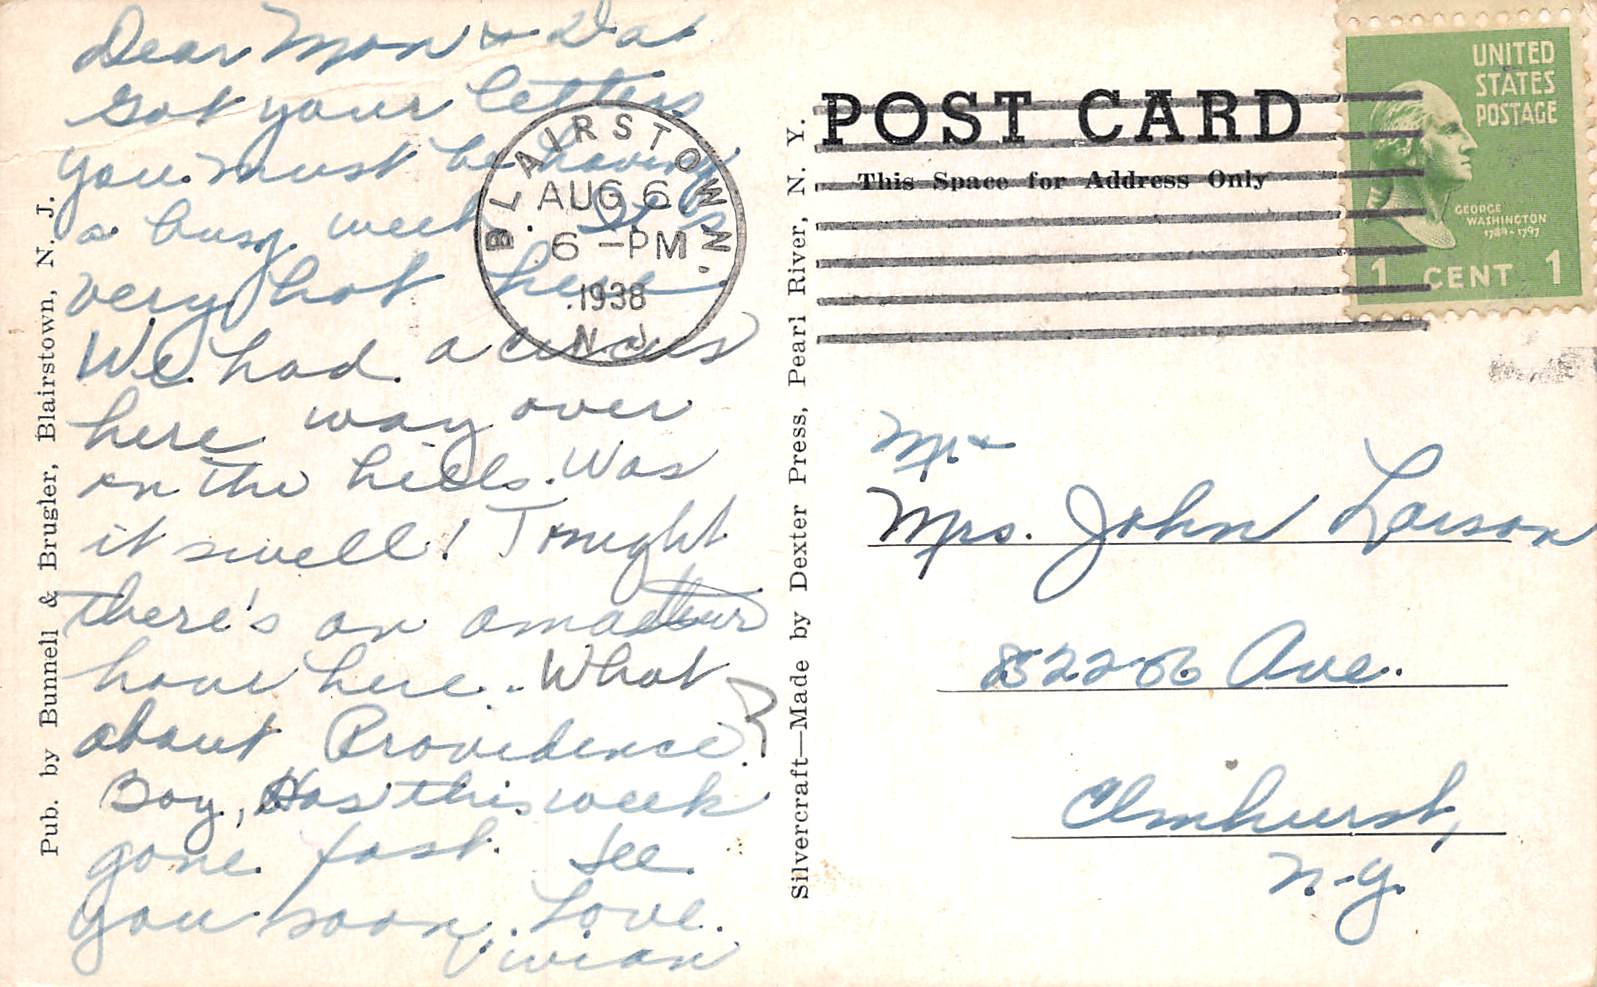 Dear Mom & Dad
Got your letters
you must be having
a busy week. It is
very hot here.
We had a circus
here way over
in the hills. Was
it swell! Tonight
there's an amateur
hour here. What
about Providence?
Boy, Has this week
gone fast. See
you soon. Love.
Vivian
Pub. by Bunnell & Brugler, Blairstown, N. J.
BLAIRSTOWN.
AUG 6
6 -PM
1938
N.J.
Silvercraft—Made by Dexter Press, Pearl River, N. Y.
POST CARD
This Space for Address Only
UNITED
STATES
POSTAGE
GEORGE
WASHINGTON
1789-1797
1 CENT 1
Mr. &
Mrs. John Larson
Ave.
Elmhurst,
N.Y.